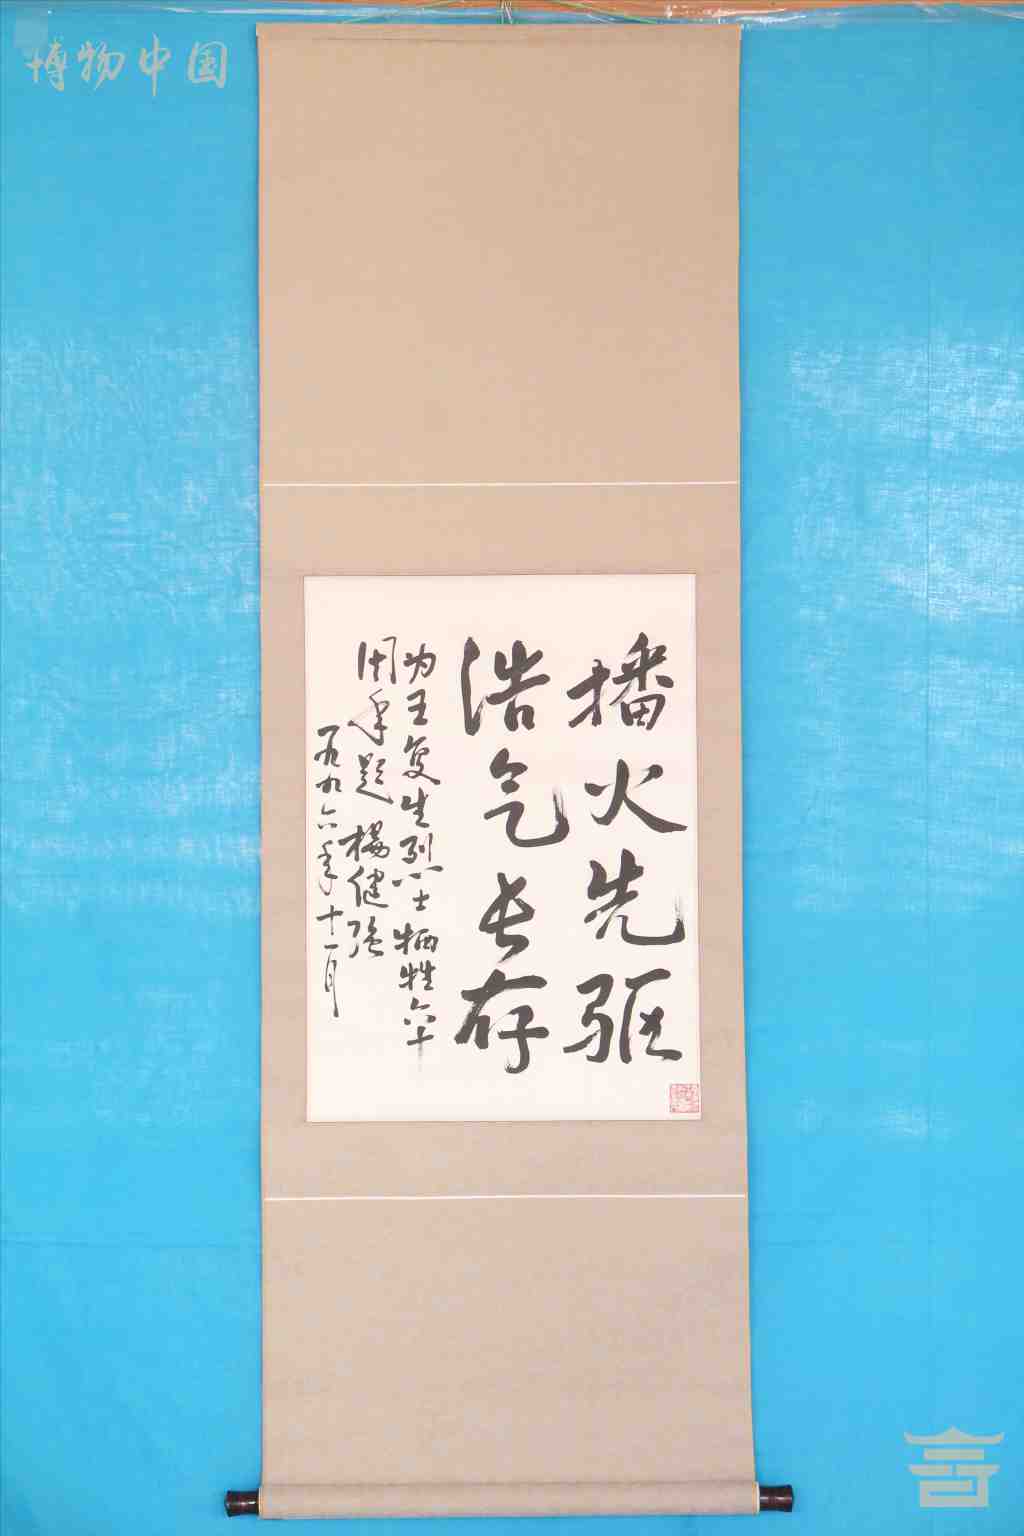 博物中国
播火先驱
浩气长存
为王复生烈士牺牲六十
周年题 杨健强
一九九六年十一月